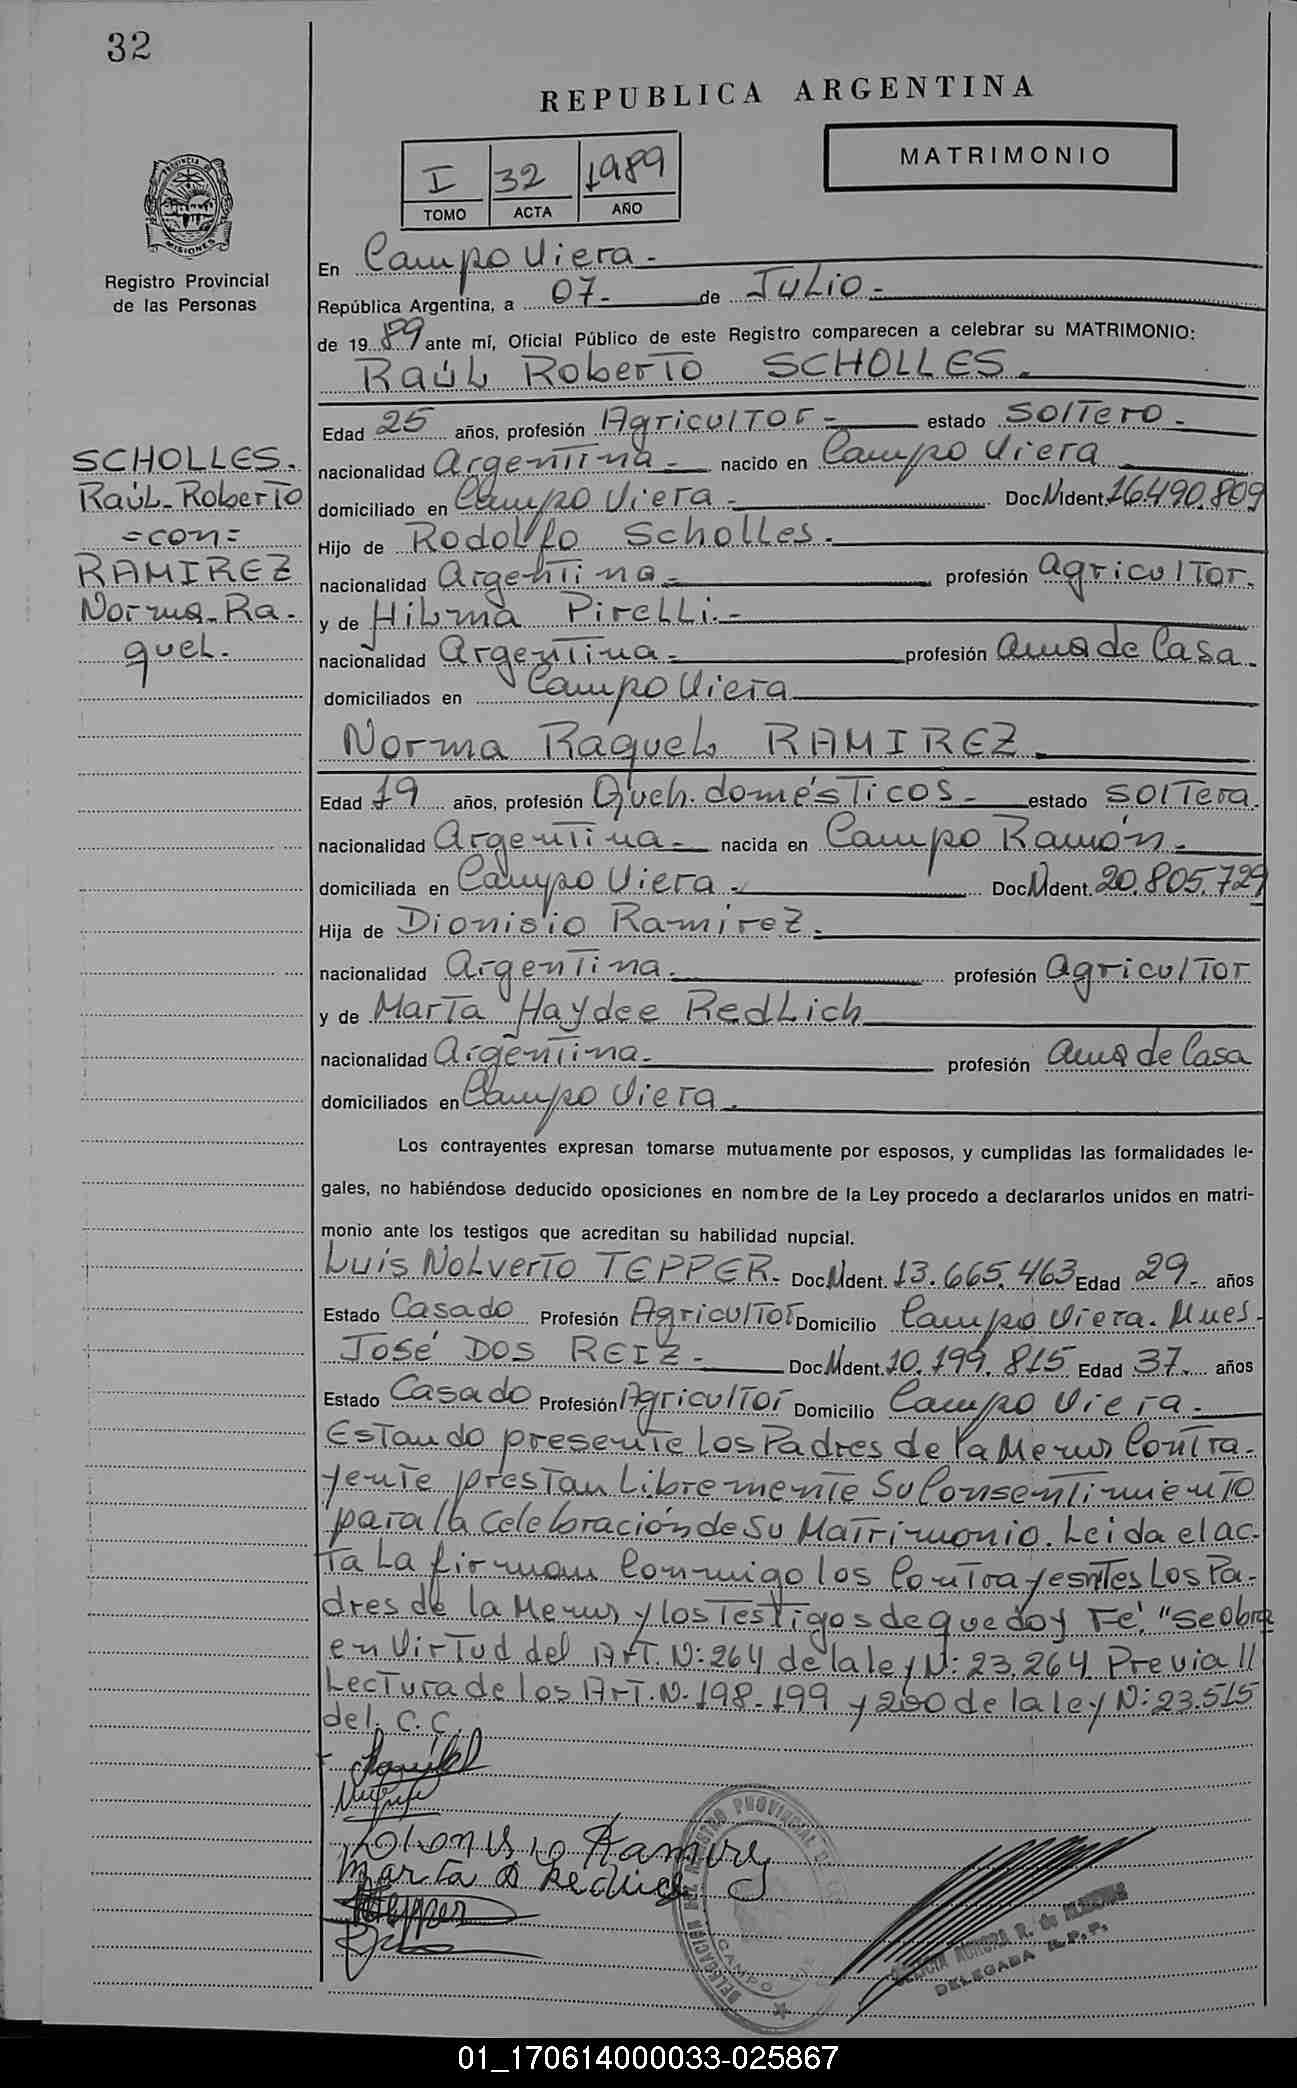 32
REPUBLICA ARGENTINA
MATRIMONIO
I 32 1989
TOMO ACTA AÑO
PROVINCIA DE MISIONES
Registro Provincial
de las Personas
En Campo Viera.-
República Argentina, a 07.- de Julio.-
de 1989 ante mí, Oficial Público de este Registro comparecen a celebrar su MATRIMONIO:
Raúl Roberto SCHOLLES.
Edad 25 años, profesión Agricultor.- estado Soltero.-
nacionalidad Argentina.- nacido en Campo Viera
domiciliado en Campo Viera.- Doc.N.Ident. 16.490.809
Hijo de Rodolfo Scholles.
nacionalidad Argentina.- profesión Agricultor.
y de Hilma Pirelli.-
nacionalidad Argentina.- profesión Ama de Casa.
domiciliados en Campo Viera
SCHOLLES.
Raúl Roberto
=con=
RAMIREZ
Norma Ra-
quel.
Norma Raquel RAMIREZ.
Edad 19 años, profesión Queh. domésticos.- estado soltera.
nacionalidad Argentina.- nacida en Campo Ramón.-
domiciliada en Campo Viera.- Doc.N.Ident. 20.805.729
Hija de Dionisio Ramirez.
nacionalidad Argentina. profesión Agricultor
y de Marta Haydee Redlich
nacionalidad Argentina. profesión Ama de Casa
domiciliados en Campo Viera.
Los contrayentes expresan tomarse mutuamente por esposos, y cumplidas las formalidades le-
gales, no habiéndose deducido oposiciones en nombre de la Ley procedo a declararlos unidos en matri-
monio ante los testigos que acreditan su habilidad nupcial.
Luis Nolverto TEPPER.- Doc.N.Ident. 13.665.463 Edad 29.- años
Estado Casado Profesión Agricultor Domicilio Campo Viera. Mnes-
José DOS REIZ.- Doc.N.Ident. 10.199.815 Edad 37. años
Estado Casado Profesión Agricultor Domicilio Campo Viera.-
Estando presente los Padres de la Menor Contra-
yente prestan Libremente Su Consentimiento
para la Celebración de Su Matrimonio. Leida el ac-
ta La firman Conmigo los Contrayesntes Los Pa-
dres de la Menor y los Testigos de que doy Fe. "Se obra
en Virtud del Art. N: 264 de la ley N: 23.264 Previa //
Lectura de los Art. N. 198-199 y 200 de la ley N: 23.515
del. C.C.
Dionisio Ramirez
Marta Redlich
Tepper
DELEGACION DEL REGISTRO PROVINCIAL DE
CAMPO
AURORA R. de
DELEGADA R.P.P.
01_170614000033-025867